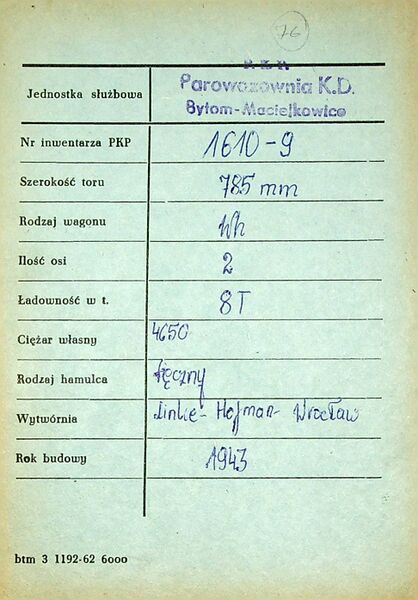 76
P.K.P.
Jednostka służbowa Parowozownia K.D.
Bytom-Maciejkowice
Nr inwentarza PKP 1610-9
Szerokość toru 785 mm
Rodzaj wagonu Wh
Ilość osi 2
Ładowność w t. 8T
Ciężar własny 4650
Rodzaj hamulca ręczny
Wytwórnia Linke-Hofman-Wrocław
Rok budowy 1943
btm 3 1192-62 6000